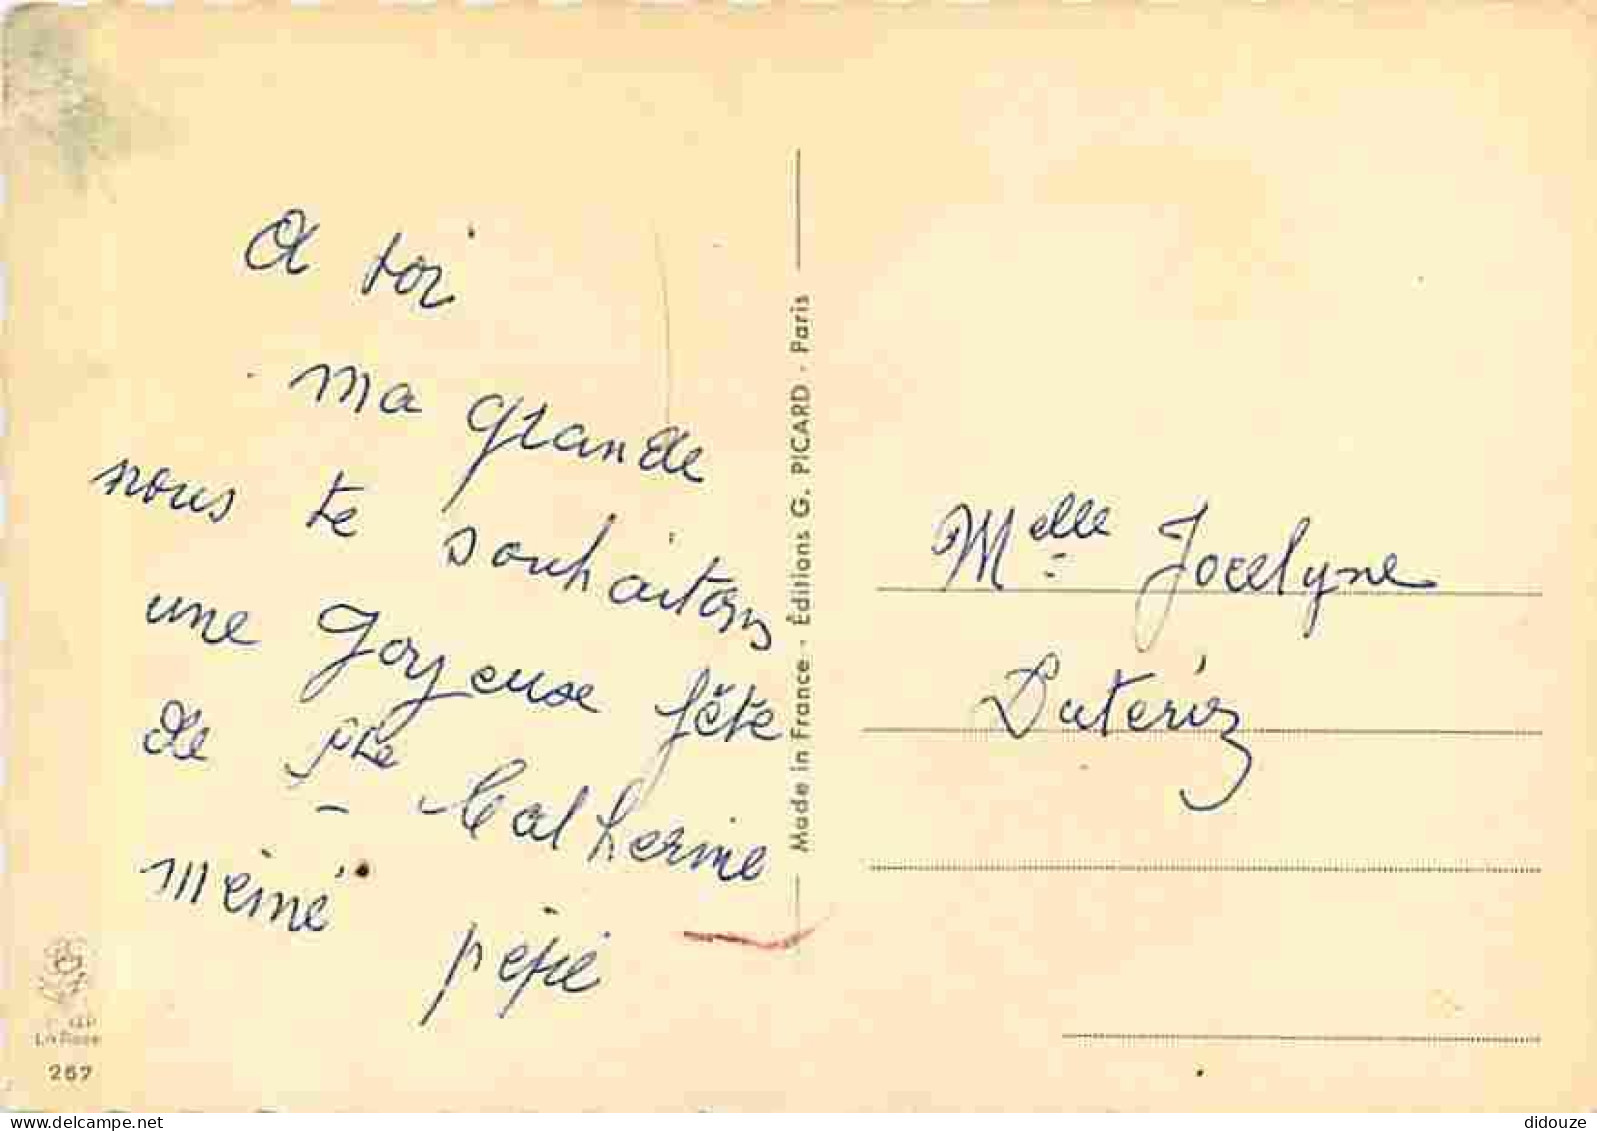 A toi
ma grande
nous te souhaitons
une Joyeuse fête
de Ste Catherine
mémé pépé
Made in France - Éditions G. PICARD - Paris
Melle Jocelyne
Duteriez
267
delcampe.net
didouze